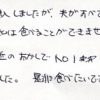 入しましたが、夫がすべて
は食べることができませ
近のおかしで NO1
した。是非食べてみて